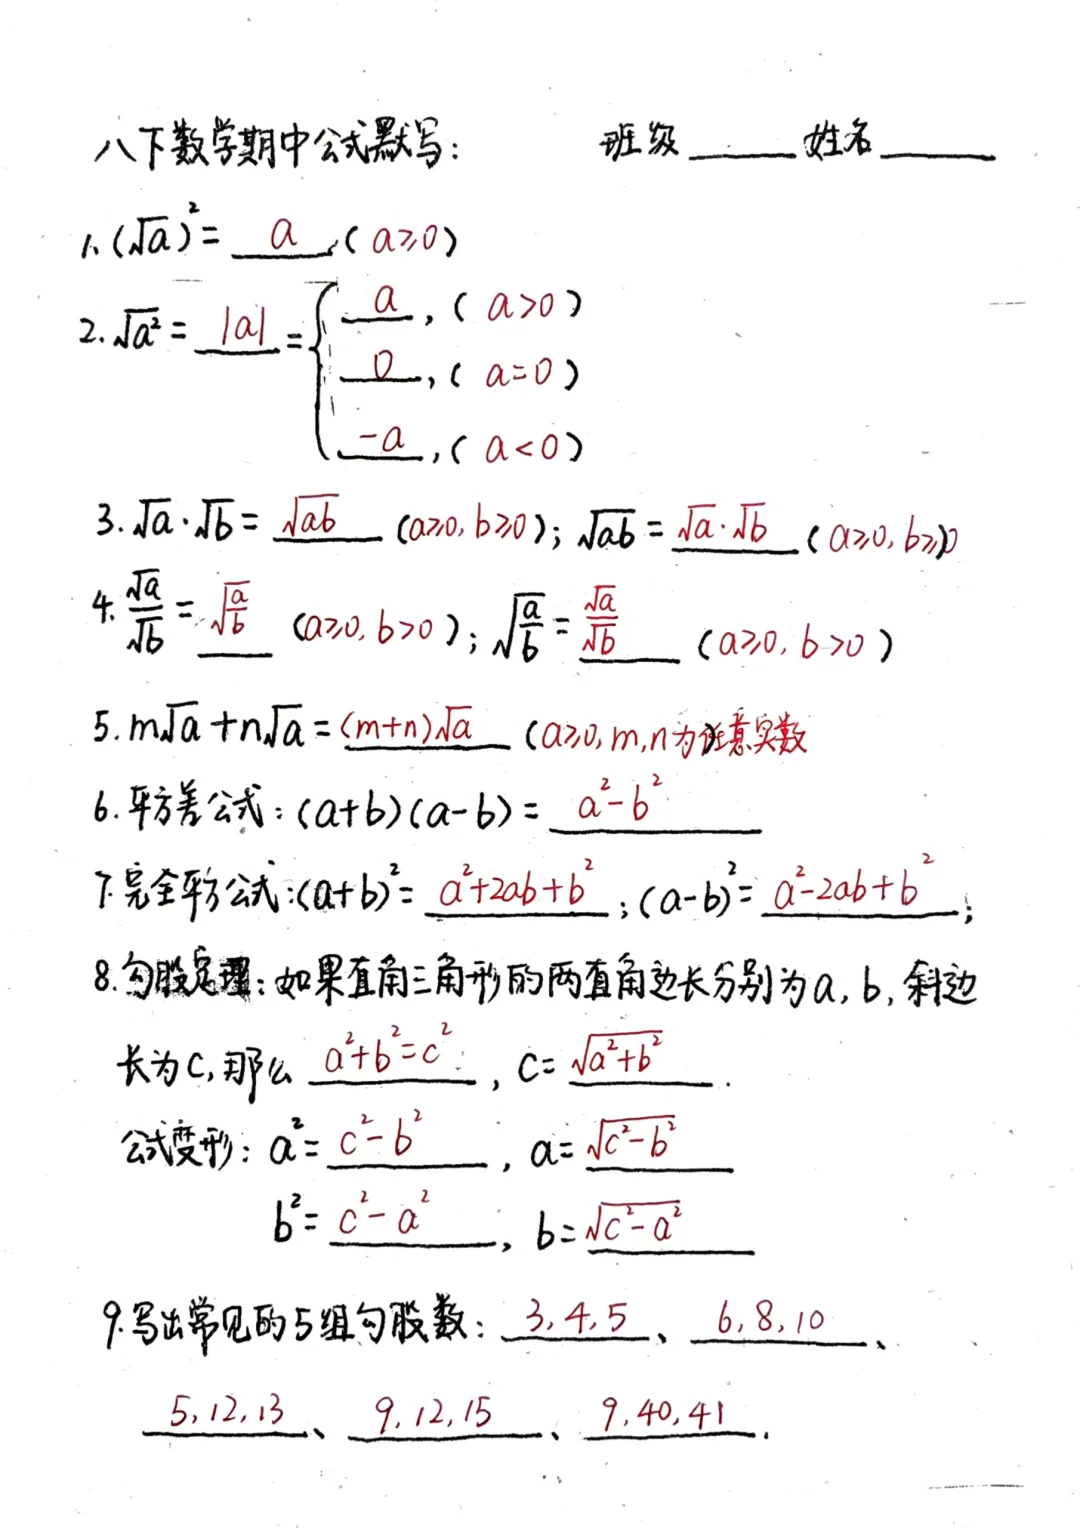 八下数学期中公式默写: 班级______ 姓名______
1. (√a)² = a (a≥0)
2. √a² = |a| = { a, (a>0)
0, (a=0)
-a, (a<0)
3. √a·√b = √ab (a≥0, b≥0); √ab = √a·√b (a≥0, b≥0)
4. √a/√b = √(a/b) (a≥0, b>0); √(a/b) = √a/√b (a≥0, b>0)
5. m√a+n√a = (m+n)√a (a≥0, m,n为任意实数)
6. 平方差公式: (a+b)(a-b) = a²-b²
7. 完全平方公式: (a+b)² = a²+2ab+b²; (a-b)² = a²-2ab+b²;
8. 勾股定理: 如果直角三角形的两直角边长分别为a, b, 斜边
长为c, 那么 a²+b²=c², c= √(a²+b²).
公式变形: a² = c²-b², a= √(c²-b²)
b² = c²-a², b= √(c²-a²)
9. 写出常见的5组勾股数: 3,4,5、 6,8,10、
5,12,13、 9,12,15、 9,40,41.